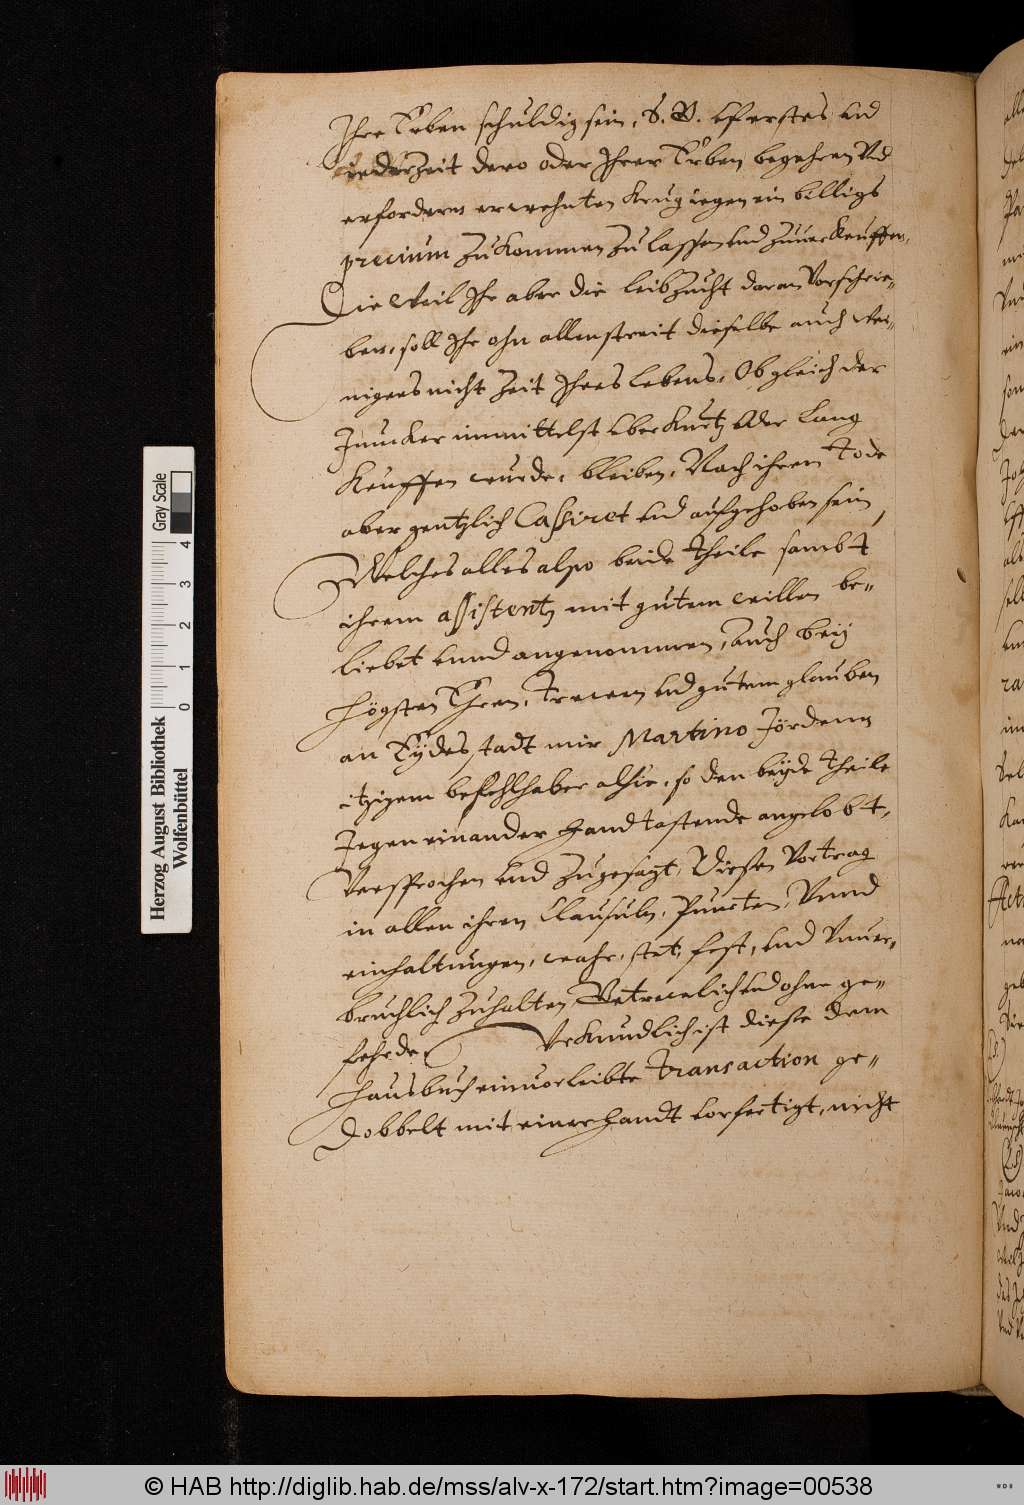 Ihre Erben schuldig sein, S. V. vf erstes vnd
iederzeit dero oder Ihrer Erben begehren Vnd
erfordern erwehnten Krug iegen ein billigs
precium zukommen zu lassen vnd zuuerkeuffen,
Die weil Ihr aber die leibzucht daran Vorschrie-
ben, soll Ihr ohn allen streit dieselbe auch we-
nigers nicht Zeit Ihres lebens, Ob gleich der
Juncker immittelst vber kurtz oder lang
keuffen wurde, bleiben, Nach ihrem Tode
aber gentzlich Cassiret vnd aufgehoben sein,
Welches alles also beide theile sambt
ihrem assistentz mit gutem willen be-
liebet vnnd angenommen, Auch beÿ
högsten Ehren, Trewen vnd gutem glauben
an Eÿdes stadt mir Martino Jördenn
itzigem befehlhaber alhie, so den beÿde theile
Iegen einander handtastende angelobt,
Versprochen vnd zugesagt, Diesen Vortrag
in allen ihren Clausuln, Puncten, Vnnd
einhaltungen, wahr, stet, fest, vnd Vnuer-
bruchlich zuhalten, Getrewlich vnd ohne ge-
fehrde, Vrkundlich ist diese dem
hausbuch einuorleibte Transaction ge-
dobbelt mit einer handt vorfertigt, nicht
Herzog August Bibliothek
Wolfenbüttel
0 1 2 3 4
Gray Scale
© HAB http://diglib.hab.de/mss/alv-x-172/start.htm?image=00538